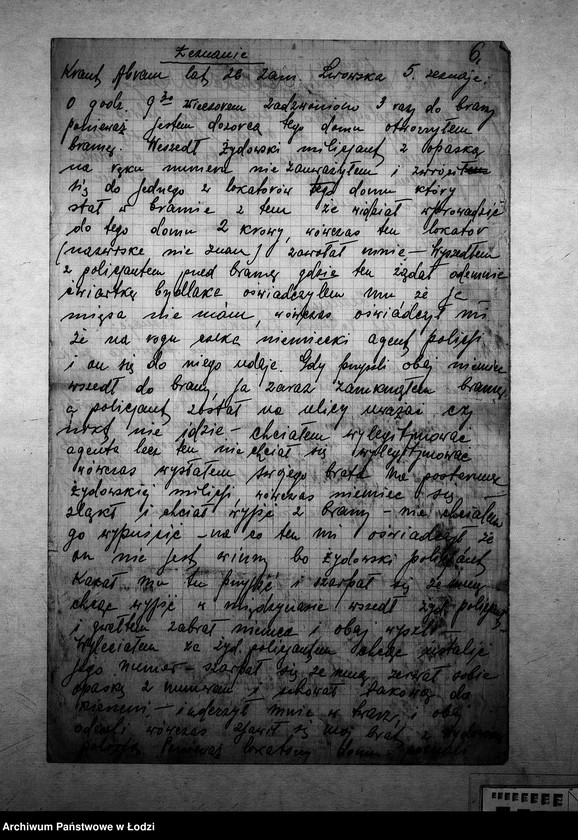 Zeznanie
6.
Krant Abram lat 26 zam. Lwowska 5. zeznaje:
O godz. 9 30 wieczorem zadzwoniono 3 razy do bramy
ponieważ jestem dozorcą tego domu otworzyłem
bramę. Wszedł żydowski milicjant z opaską
na ręku numeru nie zauważyłem i zwrócił
się do jednego z lokatorów tego domu który
stał w bramie z tem że widział wprowadzić
do tego domu 2 krowy, wówczas ten lokator
(nazwiska nie znam) zawołał mnie – Wyszedłem
z policjantem przed bramę gdzie ten żądał odemnie
ćwiartkę bydlaka oświadczyłem mu że ja
mięsa nie mam, wówczas oświadczył mi
że na rogu czeka niemiecki agent policji
i on się do niego udaje. Gdy przyszli obaj niemiec
wszedł do bramy, ja zaraz zamknąłem bramę
a policjant został na ulicy uważać czy
nikt nie idzie – chciałem wylegitymować
agenta lecz ten nie chciał się wylegitymować
wówczas wysłałem swojego brata na posterunek
żydowskiej milicji, wówczas niemiec się
zląkł i chciał wyjść z bramy – nie chciałem
go wypuścić – na co ten mi oświadczył że
on nie jest winny bo żydowski policjant
kazał mu tu przyjść i szarpał się ze mną
chcąc wyjść w międzyczasie wszedł żyd. policjant
i gwałtem zabrał niemca i obaj wyszli –
Wyleciałem za żyd. policjantem chcąc
jego numer – szarpał się ze mną zerwał sobie
opaskę z numerem i schował takową do
kieszeni – i uderzył mnie w twarz, i obaj
odeszli wówczas zjawił się mój brat z żydowską
policją Ponieważ lokatorzy domu
Archiwum Państwowe w Łodzi